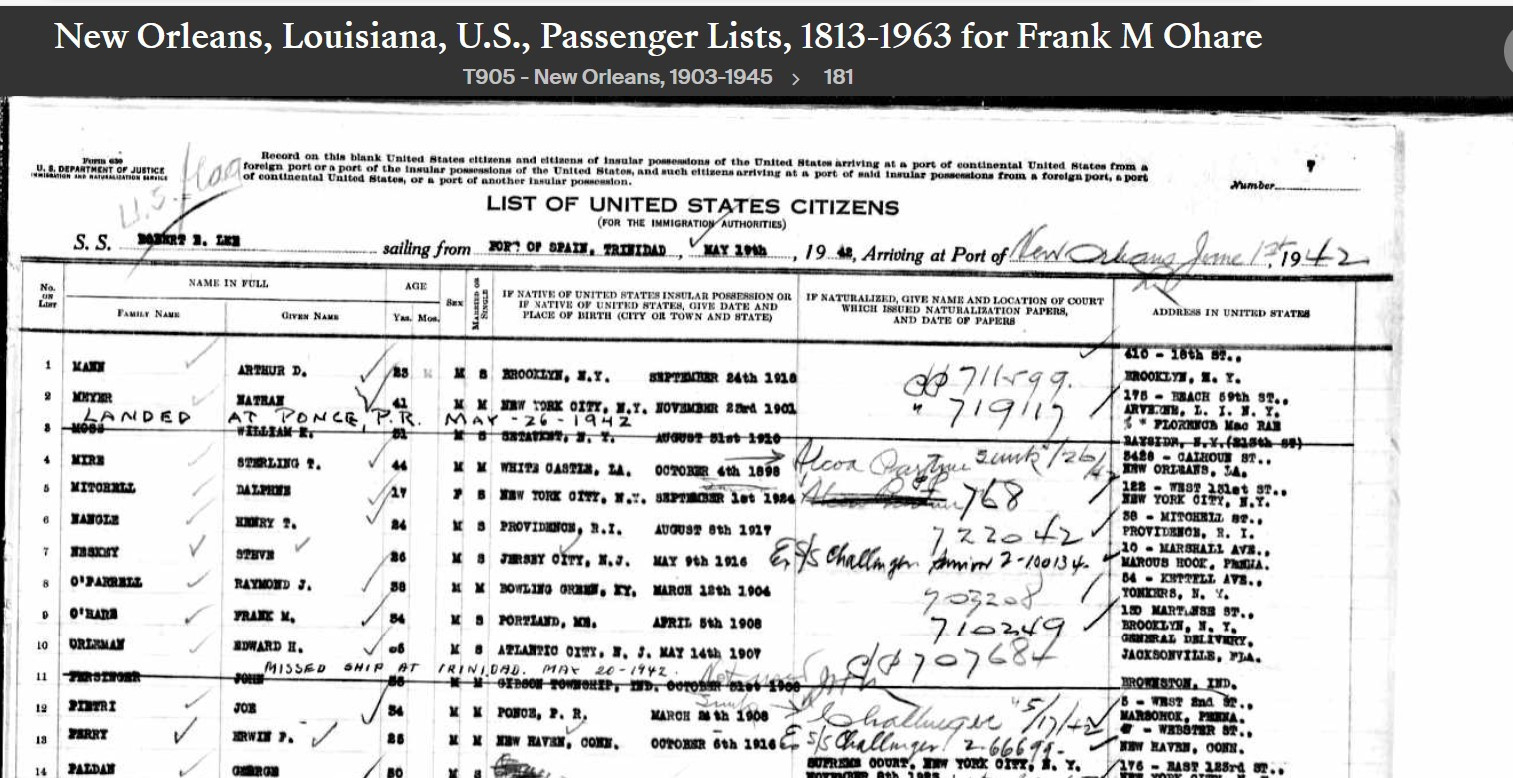 New Orleans, Louisiana, U.S., Passenger Lists, 1813-1963 for Frank M Ohare
T905 - New Orleans, 1903-1945 > 181
Form 630
U. S. DEPARTMENT OF JUSTICE
IMMIGRATION AND NATURALIZATION SERVICE
U.S. flag
Record on this blank United States citizens and citizens of insular possessions of the United States arriving at a port of continental United States from a
foreign port or a port of the insular possessions of the United States, and such citizens arriving at a port of said insular possessions from a foreign port, a port
of continental United States, or a port of another insular possession.
Number
LIST OF UNITED STATES CITIZENS
(FOR THE IMMIGRATION AUTHORITIES)
S. S. ROBERT E. LEE sailing from PORT OF SPAIN, TRINIDAD, MAY 19th, 19 42, Arriving at Port of New Orleans June 1st, 1942
No. ON LIST
NAME IN FULL
FAMILY NAME
GIVEN NAME
AGE
Yrs. Mos.
SEX
MARRIED OR SINGLE
IF NATIVE OF UNITED STATES INSULAR POSSESSION OR
IF NATIVE OF UNITED STATES, GIVE DATE AND
PLACE OF BIRTH (CITY OR TOWN AND STATE)
IF NATURALIZED, GIVE NAME AND LOCATION OF COURT
WHICH ISSUED NATURALIZATION PAPERS,
AND DATE OF PAPERS
ADDRESS IN UNITED STATES
410 - 18th ST.,
1 MANN ARTHUR D. 23 M S BROOKLYN, N.Y. SEPTEMBER 24th 1918 711599. BROOKLYN, N. Y.
2 MEYER NATHAN 41 M M NEW YORK CITY, N.Y. NOVEMBER 23rd 1901 " 719117 175 - BEACH 59th ST.,
ARVERNE, L. I. N. Y.
LANDED AT PONCE, P.R. MAY -26-1942
% FLORENCE Mac RAE
3 MOSS WILLIAM 31 M S N. Y. AUGUST 31st 1910 BAYSIDE, N.Y.
4 MIRE STERLING T. 44 M M WHITE CASTLE, LA. OCTOBER 4th 1898 Alcoa Partner sunk 3428 - CALHOUN ST.,
NEW ORLEANS, LA.
5 MITCHELL DALPHNE 17 F S NEW YORK CITY, N.Y. SEPTEMBER 1st 1924 768 122 - WEST 131st ST.,
NEW YORK CITY, N.Y.
6 NANGLE HENRY T. 24 M S PROVIDENCE, R.I. AUGUST 8th 1917 722042 38 - MITCHELL ST.,
PROVIDENCE, R. I.
7 STEVE 26 M S JERSEY CITY, N.J. MAY 9th 1916 Ex S/S Challenger 2-100134. 10 - MARSHALL AVE.,
MARCUS HOOK, PENNA.
8 O'FARRELL RAYMOND J. 38 M M BOWLING GREEN, KY. MARCH 12th 1904 703208 54 - KETTELL AVE.,
YONKERS, N. Y.
9 O'HARE FRANK M. 34 M S PORTLAND, ME. APRIL 5th 1908 710249 ST.,
BROOKLYN, N. Y.
10 ORLEMAN EDWARD H. M S ATLANTIC CITY, N. J. MAY 14th 1907 707684 GENERAL DELIVERY,
JACKSONVILLE, FLA.
MISSED SHIP AT TRINIDAD. MAY 20-1942.
11 PERSINGER JOHN M M GIBSON TOWNSHIP, IND. OCTOBER 31st BROWNSTON, IND.
12 PIETRI JOE 34 M M PONCE, P. R. MARCH 1908 Challenger 5/17/42 5 - WEST 2nd ST.,
PENNA.
13 PERRY ERWIN F. 25 M M NEW HAVEN, CONN. OCTOBER 6th 1916 Ex S/S Challenger WEBSTER ST.,
NEW HAVEN, CONN.
14 PALDAN GEORGE 50 M S SUPREME COURT, NEW YORK CITY, N. Y. 176 - EAST 123rd ST.,